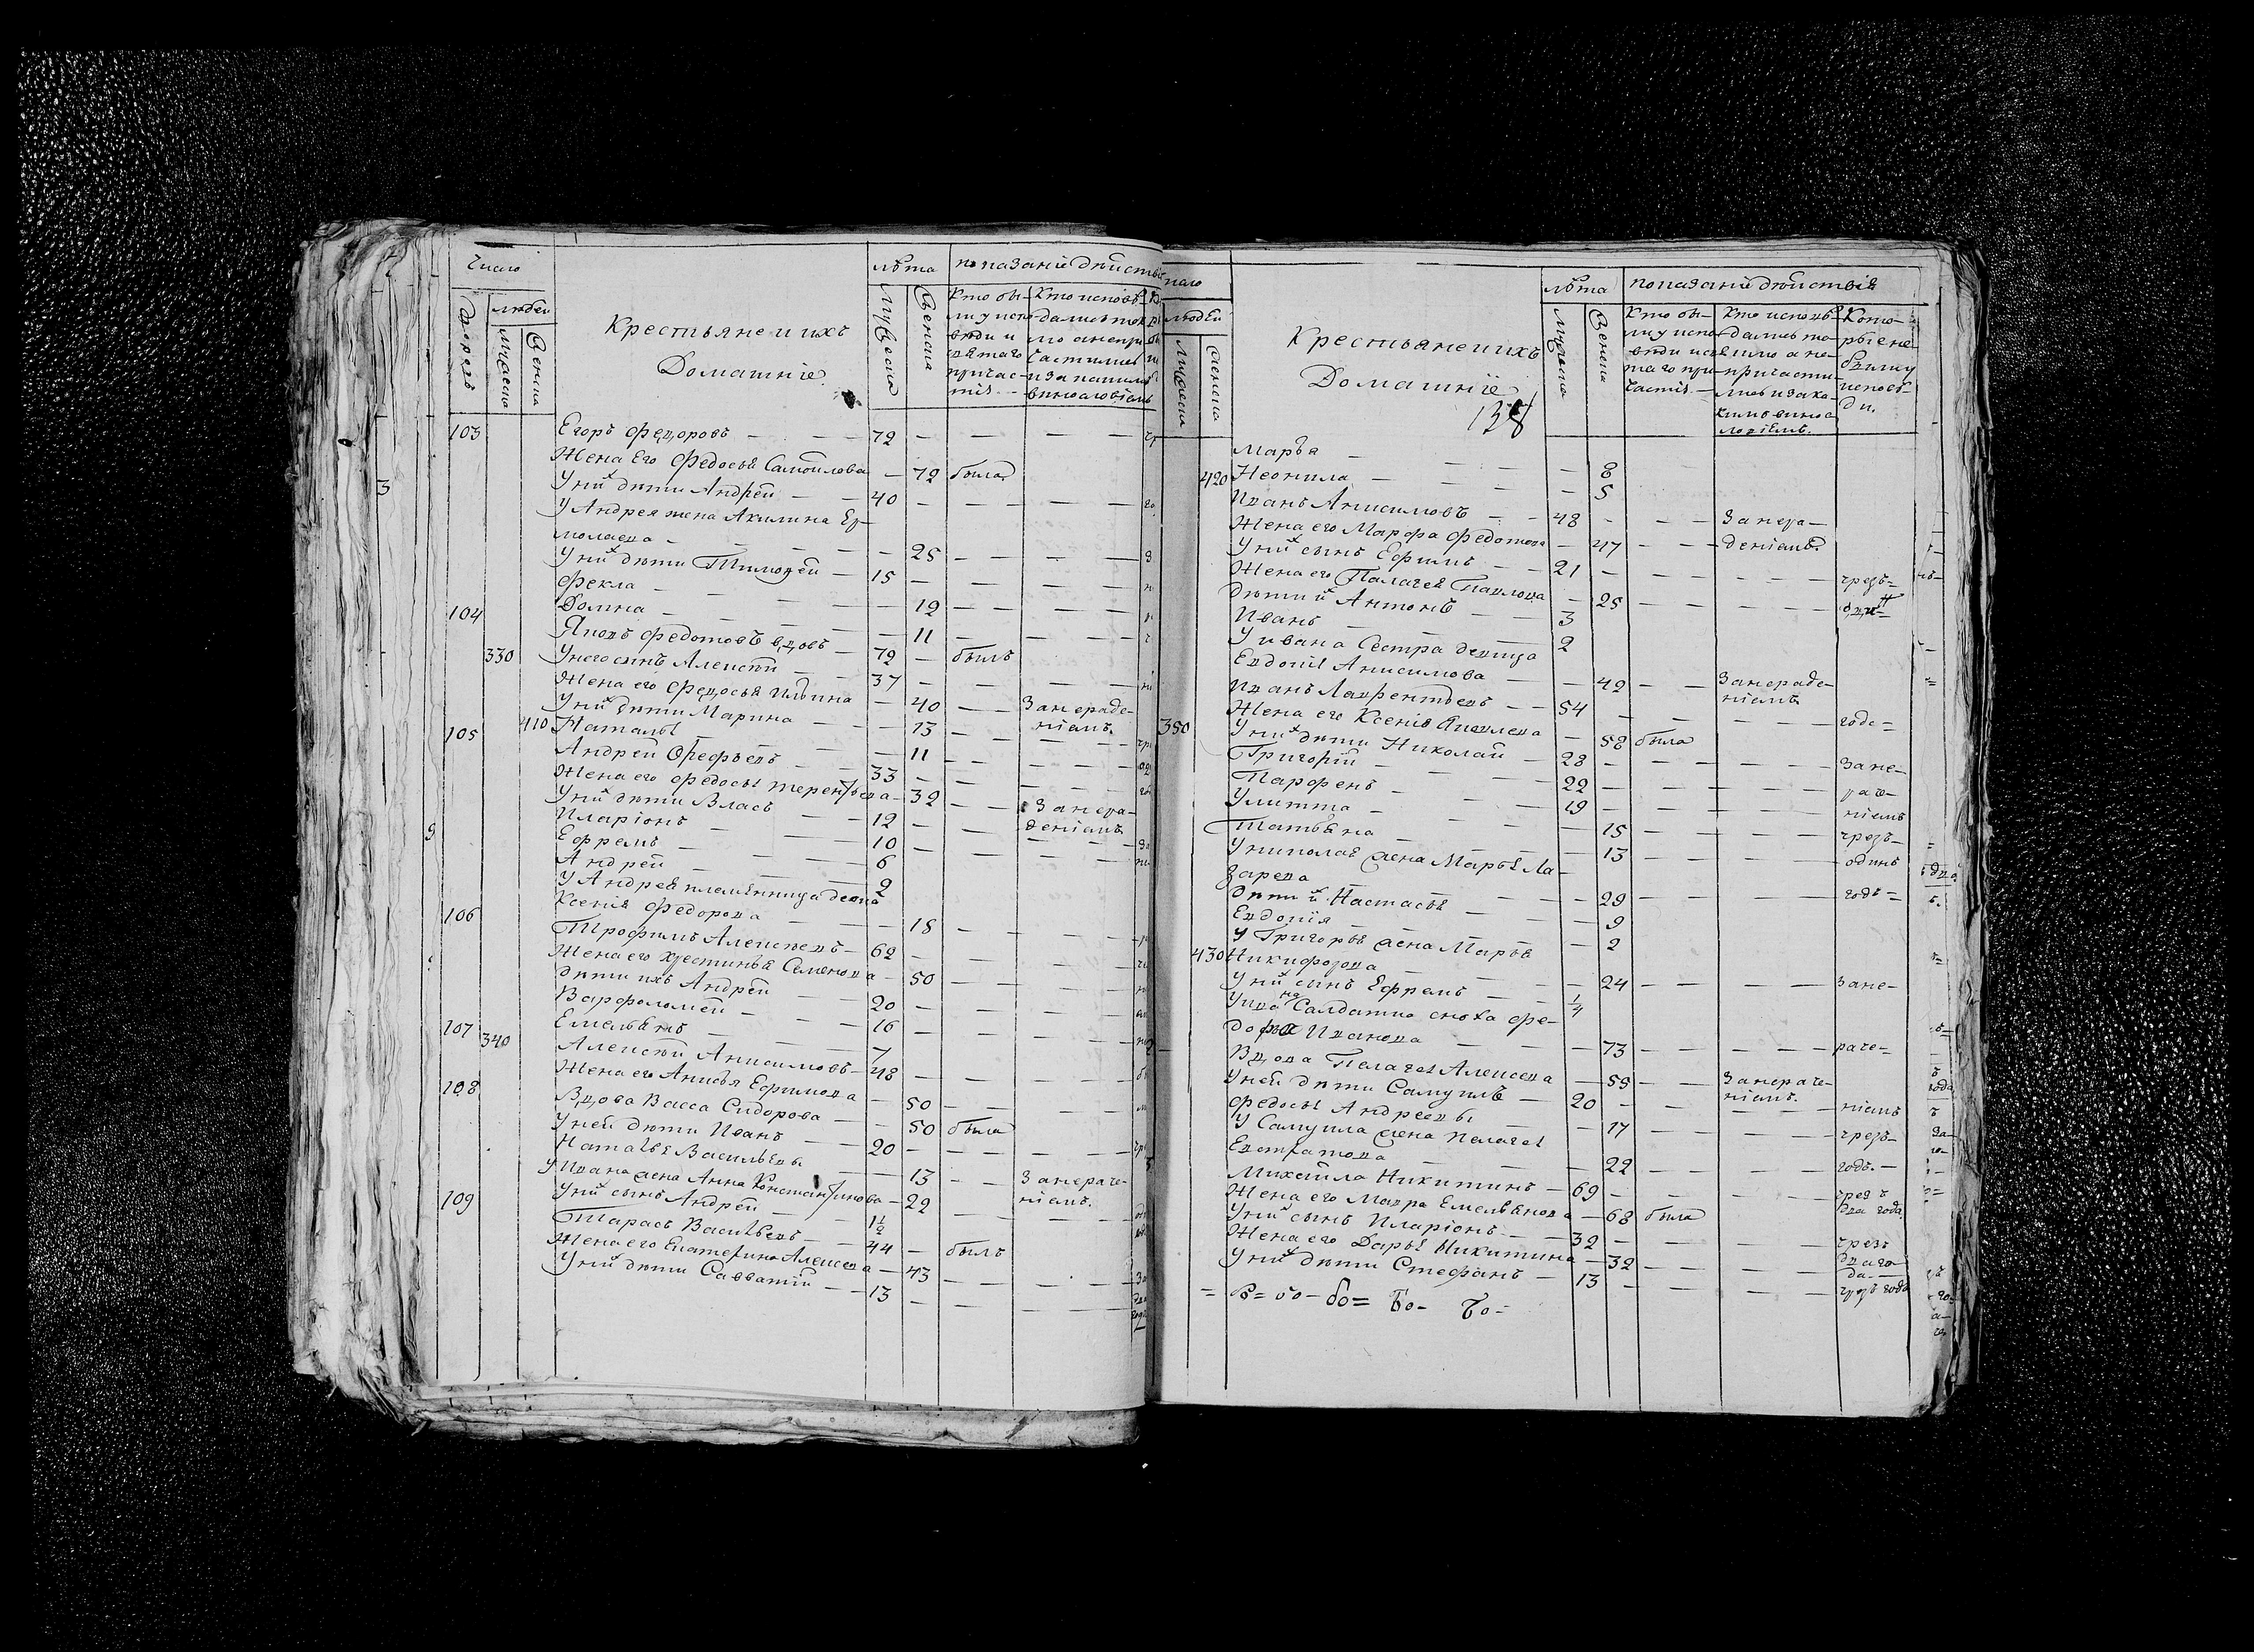 число
людей
дворовъ
мужеска
женска
Крестьяне и ихъ
Домашніе
лѣта
мужеска
женска
показаніе дѣйстві
Кто бы-
ли у испо-
вѣди и
святаго
причас-
тія
Кто исповѣ-
дались ток
мо а непри
частились
и за какимъ
виносло́віемъ
103 Егоръ Федоровъ — 72 — — —
Жена Его Федосья Самойлова — 72 была
У ни дѣти Андрей — 40 — — —
У Андрея жена Акилина Ер-
молаева — 25 — — —
У ни дѣти Тимофей — 15 — — —
Фекла — 12 — — —
Домна — 11 — — —
104 Яковъ Федотовъ вдовъ — 72 — былъ
330 У него сынъ Алексѣй — 37 — — —
Жена его Федосья Ильина — 40 — Занераде-
У ни дѣти Марина — 13 ніемъ.
410 Наталья — 11 — — —
105 Андрей Орефьевъ — 33 — — —
Жена его Федосья Терентьева — 32 — Занера-
У ни дѣти Власъ — 12 — деніемъ
Иларіонъ — 10 — — —
Ефремъ — 6
Андрей — 2
У Андрея племянница девка
Ксенія Федорова — 18 — — —
106 Трофимъ Алексѣевъ — 62 — — —
Жена его Хрестинья Семенова — 50 — — —
дѣти ихъ Андрей — 20 — — —
Варфоломей — 16 — — —
Емельянъ — 7
107 340 Алексѣй Анисимовъ — 48 — — —
Жена его Анисья Ефимова — 50 — — —
108 Вдова Васса Сидорова — 50 была
У ней дѣти Иванъ — 20 — — —
Наталья Васильевы — 13 — Занераче-
У Ивана жена Анна Константинова — 22 ніемъ.
У ни сынъ Андрей — 1½
109 Тарасъ Васильевъ — 44 — былъ
Жена его Екатерина Алексеева — 43 — — —
У ни дѣти Савватій — 13 — — —
людей
мужеска
женска
Крестьяне и ихъ
Домашніе
138
лѣта
мужеска
женска
показаніе дѣйствія
Кто бы-
ли у испо-
вѣди и свя
таго при-
частія —
Кто исповѣ-
дались то-
кмо а не-
причасти-
лись и за ка-
кимъ виносло́віемъ.
Кото-
рые не-
были у
исповѣ-
ди.
Марья — 8
420 Неонила — 5
Иванъ Анисимовъ — 48 — — Занера-
Жена его Марфа Федотова — 47 — — деніемъ
У ни сынъ Ефимъ — 21 — — —
Жена его Палагея Павлова — 25 — — — чрезъ-
дѣти и Антонъ — 3
Иванъ — 2
У ивана Сестра девица
Евдокія Анисимова — 42 — — Занераде-
ніемъ
Иванъ Лаврентьевъ — 54 — — — годъ=
350 Жена его Ксенія Яковлева — 58 была
У ни дѣти Николай — 28 — — — Зане-
Григорій — 22 — — — раче-
Парфенъ — 19 — — — ніемъ
Улитта — 15 — — — чрезъ-
Татьяна — 13 — — — одинъ
У николая жена Марья Ла-
зарева — 29 — — — годъ=
Дѣти и Настасья — 9
Евдокія — 2
У Григорья жена Марья
430 Никифорова — 24 — — — Зане-
У ни сынъ Ефремъ — ¼
Солдатка сноха Фе-
досья Иванова — 73 — — — раче-
Вдова Палагея Алексева — 55 — — Занераче-
У ней дѣти Самуилъ — 20 — ніемъ. — ніемъ
Федосья Андреевы — 17 — — — чрезъ-
У Самуила жена Пелагея
Евстратова — 22 — — — годъ. —
Михайла Никитинъ — 69 — — — чрезъ
два года.
Жена его Мавра Емельянова — 68 была
У ни сынъ Иларіонъ — 32 — — — чрезъ
Жена его Дарья Никитина — 32 — — — два го-
да —
У ни дѣти Стефанъ — 13 — — — чрезъ года